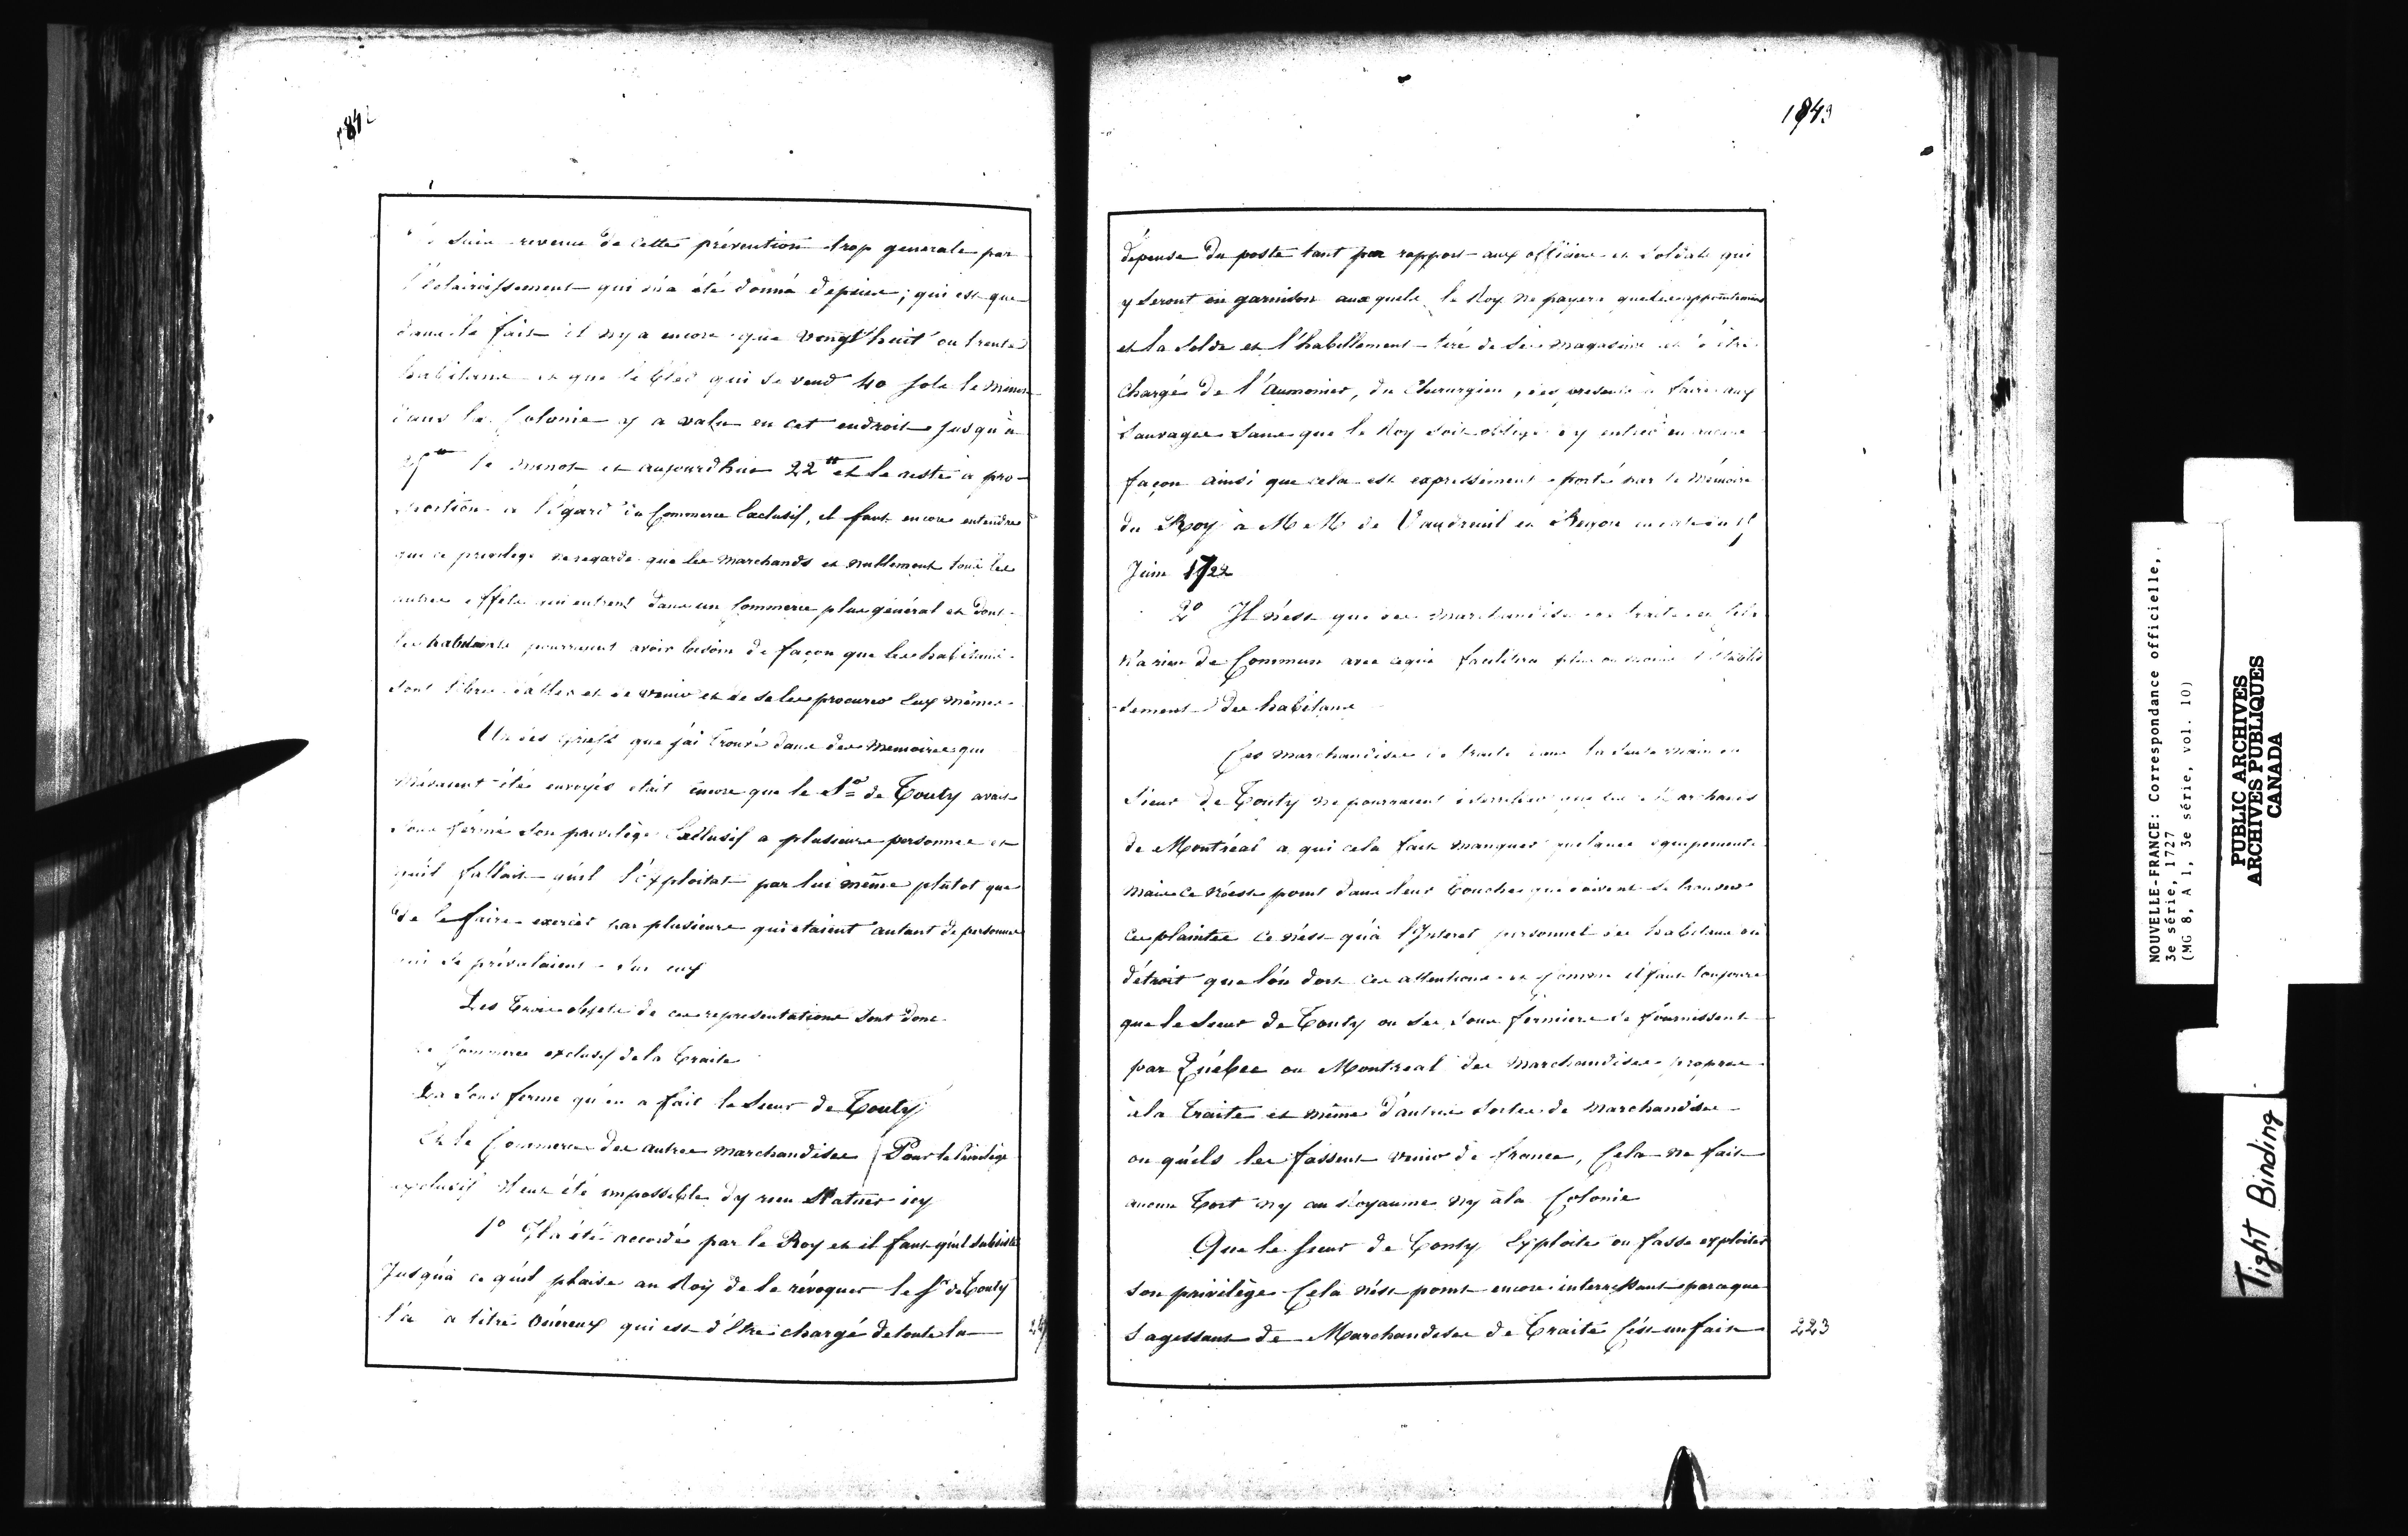 184
suis revenu de cette prévention trop generale par
l'éclaircissement qui m'a été donné depuis; qui est que
dans le fait il n'y a encore que vingt huit ou trente
habitans et que le bled qui se vend 40 sols le minot
dans la Colonie y a valu en cet endroit jusqu'à
le minot et aujourdhui 22tt et le reste a pro-
portion a l'égard du Commerce Exclusif, il faut encore entendre
que ce privilege ne regarde que les marchands et nullement tous les
autres effets qui entrent dans un Commerce plus général et dont
les habitants pourraient avoir besoin de façon que les habitans
sont libres d'aller et de venir et de se les procurer Eux mêmes.
Un des griefs que j'ai trouvé dans des memoires qui
m'avaient été envoyés était encore que le Sr de Tonty avait
sous fermé son privilège Exclusif a plusieurs personnes et
qu'il fallait qu'il l'exploitat par lui même plutot que
de le faire exercer par plusieurs qui etaient autant de personnes
qui se prévalaient sur eux
Les trois objets de ces representations sont donc
Le Commerce exclusif de la traite
La sous ferme qu'en a fait le Sieur de Tonty
Et le Commerce des autres marchandises Pour le Privilège
exclusif il eut été impossible d'y rien Statuer icy
1o Il a été accordé par le Roy et il faut qu'il subsiste
Jusqu'à ce qu'il plaise au Roy de le révoquer le Sr de Tonty
l'a a titre Onéreux qui est d'être chargé de toute la
1843
dépense du poste tant par rapport aux officiers et soldats qui
y seront en garnison auxquels le Roy ne payera que les appointemens
et la solde et l'habillement tiré de ses magasins et d'être
chargé de l'Aumonier, du Chirurgien, des presents à faire aux
Sauvages sans que le Roy soit obligé d'y entrer en aucune
façon ainsi que cela est expressément porté par le mémoire
du Roy à MM de Vaudreuil et Begon en date du
Juin 1722
2o Il n'est que des marchandises de traite et cela
n'a rien de Commun avec ce qui facilitera plus ou moins l'établis
sement des habitans
Ces marchandises de traite dans la seule main du
Sieur de Tonty ne pourraient interesser que les Marchands
de Montréal a qui cela fait manquer quelques equipements
mais ce n'est point dans leur bouche que doivent se trouver
ces plaintes ce n'est qu'à l'Interet personnel des habitans du
détroit que l'on doit ces attentions et comme il faut toujours
que le Sieur de Tonty ou ses sous fermiers se fournissent
par Québec ou Montreal des marchandises propres
à la traite et même d'autres sortes de marchandises
ou qu'ils les fassent venir de france, Cela ne fait
aucun tort ny au Royaume ny à la Colonie
Que le Sieur de Tonty Exploite ou fasse exploiter
son privilège Cela n'est point encore interressant parceque
s'agissant de Marchandises de Traite C'est un fait
223
NOUVELLE-FRANCE: Correspondance officielle,
3e série, 1727
(MG 8, A 1, 3e série, vol. 10)
PUBLIC ARCHIVES
ARCHIVES PUBLIQUES
CANADA
Tight Binding